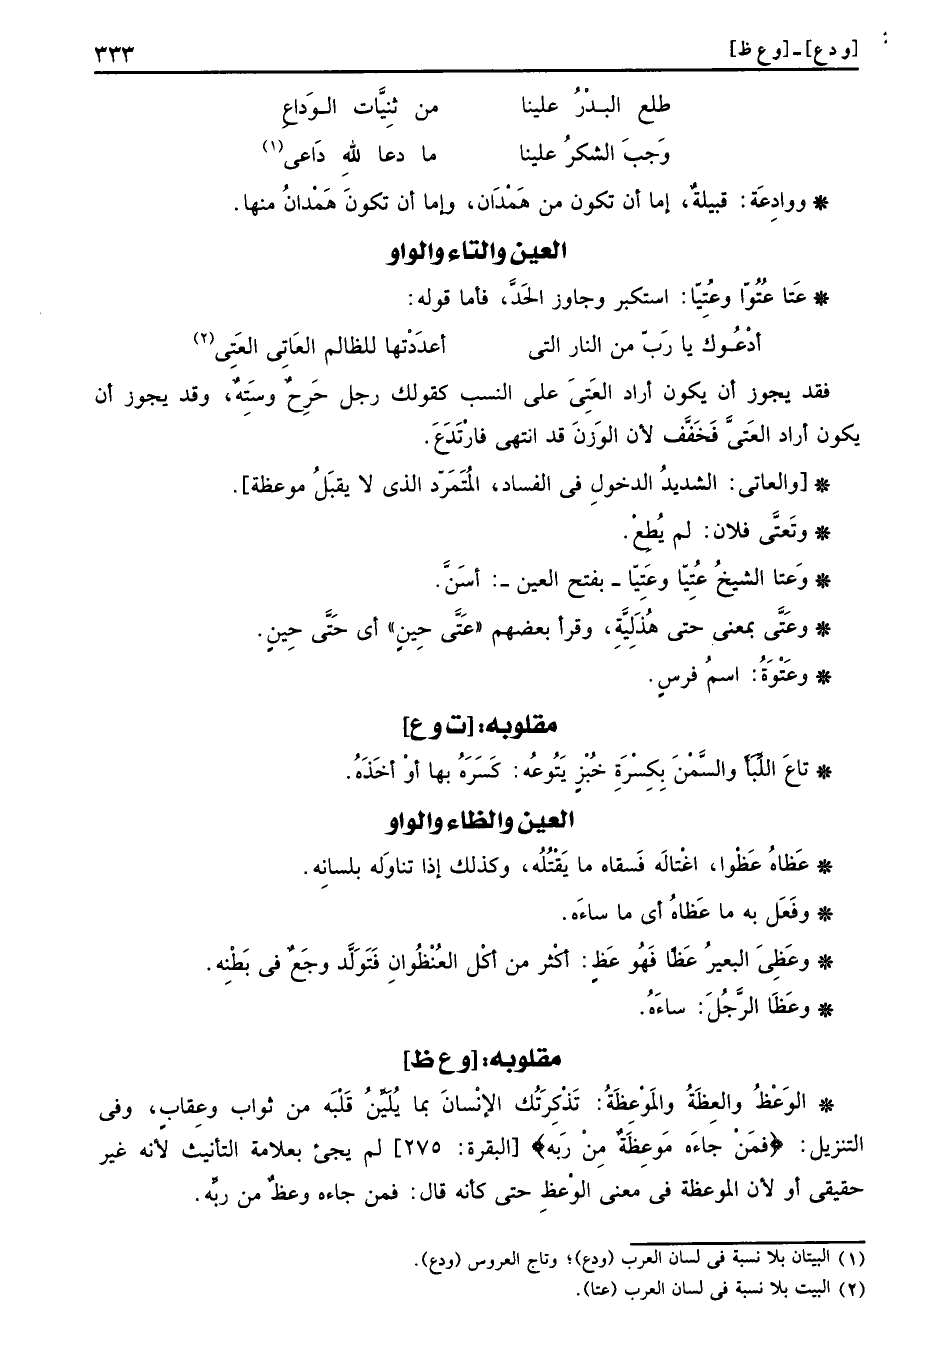 [و د ع] ـ [و ع ظ] ٣٣٣
طلع البـدْرُ علينا من ثنِيَّات الـوَداعِ
وَجبَ الشكرُ علينا ما دعا للهِ دَاعى(١)
* ووادِعَة: قبيلةٌ، إما أن تكون من هَمْدَان، وإما أن تكونَ هَمْدانُ منها.
العين والتاء والواو
* عَتا عُتُوّا وعُتِيّا: استكبر وجاوز الحَدَّ، فأما قوله:
أدْعُـوك يا رَبّ من النار التى أعدَدْتها للظالم العَاتِى العَتِى(٢)
فقد يجوز أن يكون أراد العَتِىَ على النسب كقولك رجل حَرِحٌ وسَتِهٌ، وقد يجوز أن
يكون أراد العَتىَّ فَخَفَّف لأن الوَزنَ قد انتهى فارْتَدَعَ.
* [والعاتى: الشديدُ الدخولِ فى الفساد، المُتَمَرّد الذى لا يقبَلُ موعظة].
* وتَعتَّى فلان: لم يُطِعْ.
* وَعتا الشيخُ عُتِيّا وعَتِيّا ـ بفتح العين ـ: أسَنَّ.
* وعَتَّى بمعنى حتى هُذَلِيَّةِ، وقرأ بعضهم «عَتَّى حِينٍ» أى حَتَّى حِينٍ.
* وعَتْوَةُ: اسمُ فرسٍ.
مقلوبه: [ت و ع]
* تاعَ اللِّبَأ والسَّمْنَ بِكِسْرَةِ خُبْزٍ يَتُوعُه: كَسَرَهُ بها أوْ أخَذَهُ.
العين والظاء والواو
* عَظاهُ عَظْوا، اغْتالَه فَسقاه ما يَقْتُلُه، وكذلك إذا تناوَله بلسانِه.
* وفَعَل به ما عَظاهُ أى ما ساءَه.
* وعَظِىَ البعيرُ عَظًا فَهُو عَظٍ: أكْثر من أكْل العُنْظُوانِ فَتَوَلَّد وجَعٌ فى بَطْنِه.
* وعَظَا الرَّجُلَ: ساءَهُ.
مقلوبه: [و ع ظ]
* الوَعْظُ والعِظَةُ والمَوْعِظَةُ: تَذْكِرَتُك الإنْسانَ بما يُلَيِّنُ قَلْبَه من ثواب وعِقابٍ، وفى
التنزيل: ﴿فمَنْ جاءَه مَوعِظَةٌ مِنْ رَبه﴾ [البقرة: ٢٧٥] لم يجئ بعلامة التأنيث لأنه غير
حقيقى أو لأن الموعظة فى معنى الوْعظِ حتى كأنه قال: فمن جاءه وعظٌ من ربِّه.
(١) البيتان بلا نسبة فى لسان العرب (ودع)؛ وتاج العروس (ودع).
(٢) البيت بلا نسبة فى لسان العرب (عتا).